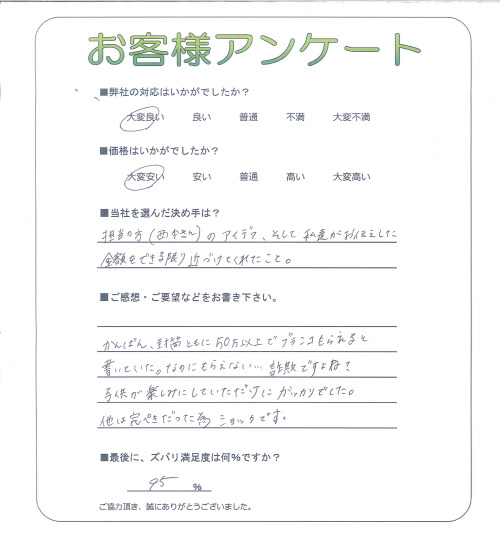 お客様アンケート
■弊社の対応はいかがでしたか？
大変良い 良い 普通 不満 大変不満
■価格はいかがでしたか？
大変安い 安い 普通 高い 大変高い
■当社を選んだ決め手は？
担当の方(西本さん)のアイデア、そして私達がお伝えした
金額をできる限り近づけてくれたこと。
■ご感想・ご要望などをお書き下さい。
かんばん、封筒ともに50万以上でブランコもらえると
書いていた。なのにもらえない…詐欺ですよね?
子供が楽しみにしていただけにガッカリでした。
他は完ぺきだった為ショックです。
■最後に、ズバリ満足度は何%ですか？
95 %
ご協力頂き、誠にありがとうございました。